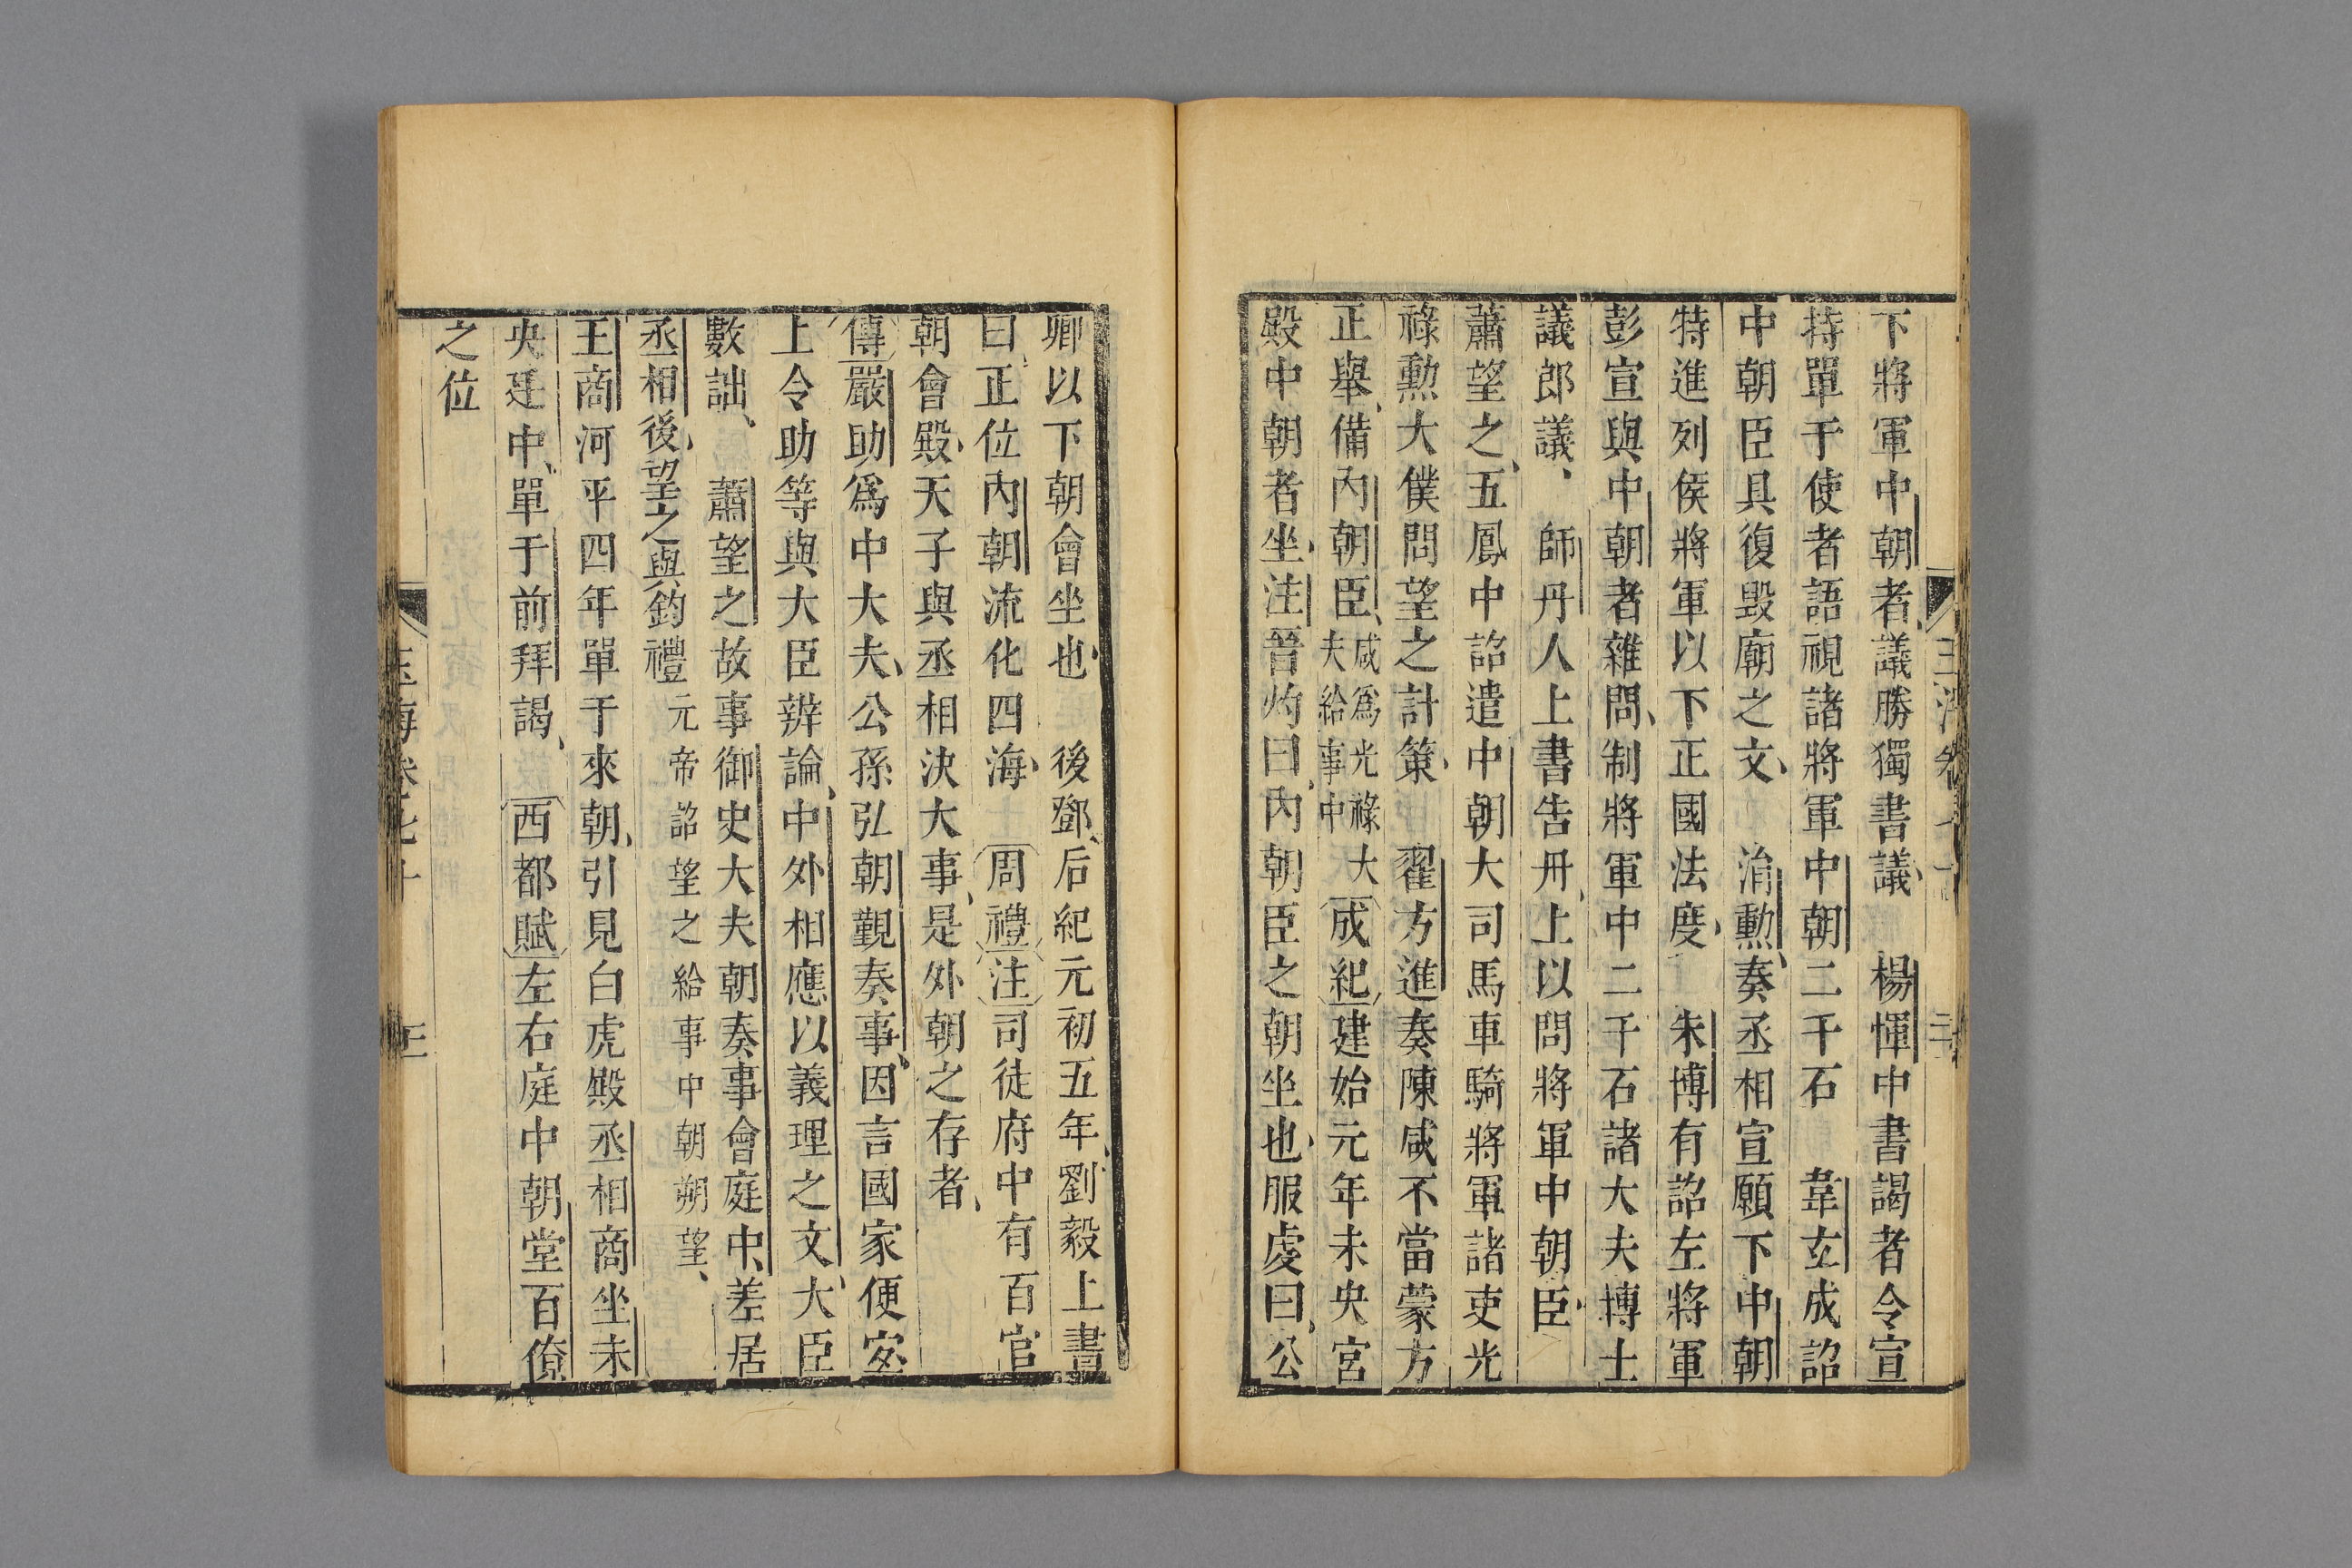 下將軍中朝者議勝獨書議　楊惲中書謁者令宣
持單于使者語視諸將軍中朝二千石　韋玄成詔
中朝臣具復毀廟之文　涓勲奏丞相宣願下中朝
特進列侯將軍以下正國法度　朱博有詔左將軍
彭宣與中朝者雜問制將軍中二千石諸大夫博士
議郎議　師丹人上書告丹上以問將軍中朝臣
蕭望之五鳳中詔遣中朝大司馬車騎將軍諸吏光
祿勲大僕問望之計策　翟方進奏陳咸不當蒙方
正舉備內朝臣咸爲光祿大夫給事中成紀建始元年未央宮
殿中朝者坐注晉灼曰內朝臣之朝坐也服虔曰公
卿以下朝會坐也　後鄧后紀元初五年劉毅上書
曰正位內朝流化四海　周禮注司徒府中有百官
朝會殿天子與丞相決大事是外朝之存者
傳嚴助爲中大夫公孫弘朝覲奏事因言國家便宐
上令助等與大臣辨論中外相應以義理之文大臣
數詘　蕭望之故事御史大夫朝奏事會庭中差居
丞相後望之與鈞禮元帝詔望之給事中朝朔望
王商河平四年單于來朝引見白虎殿丞相商坐未
央廷中單于前拜謁　西都賦左右庭中朝堂百僚
之位
玉海卷七十